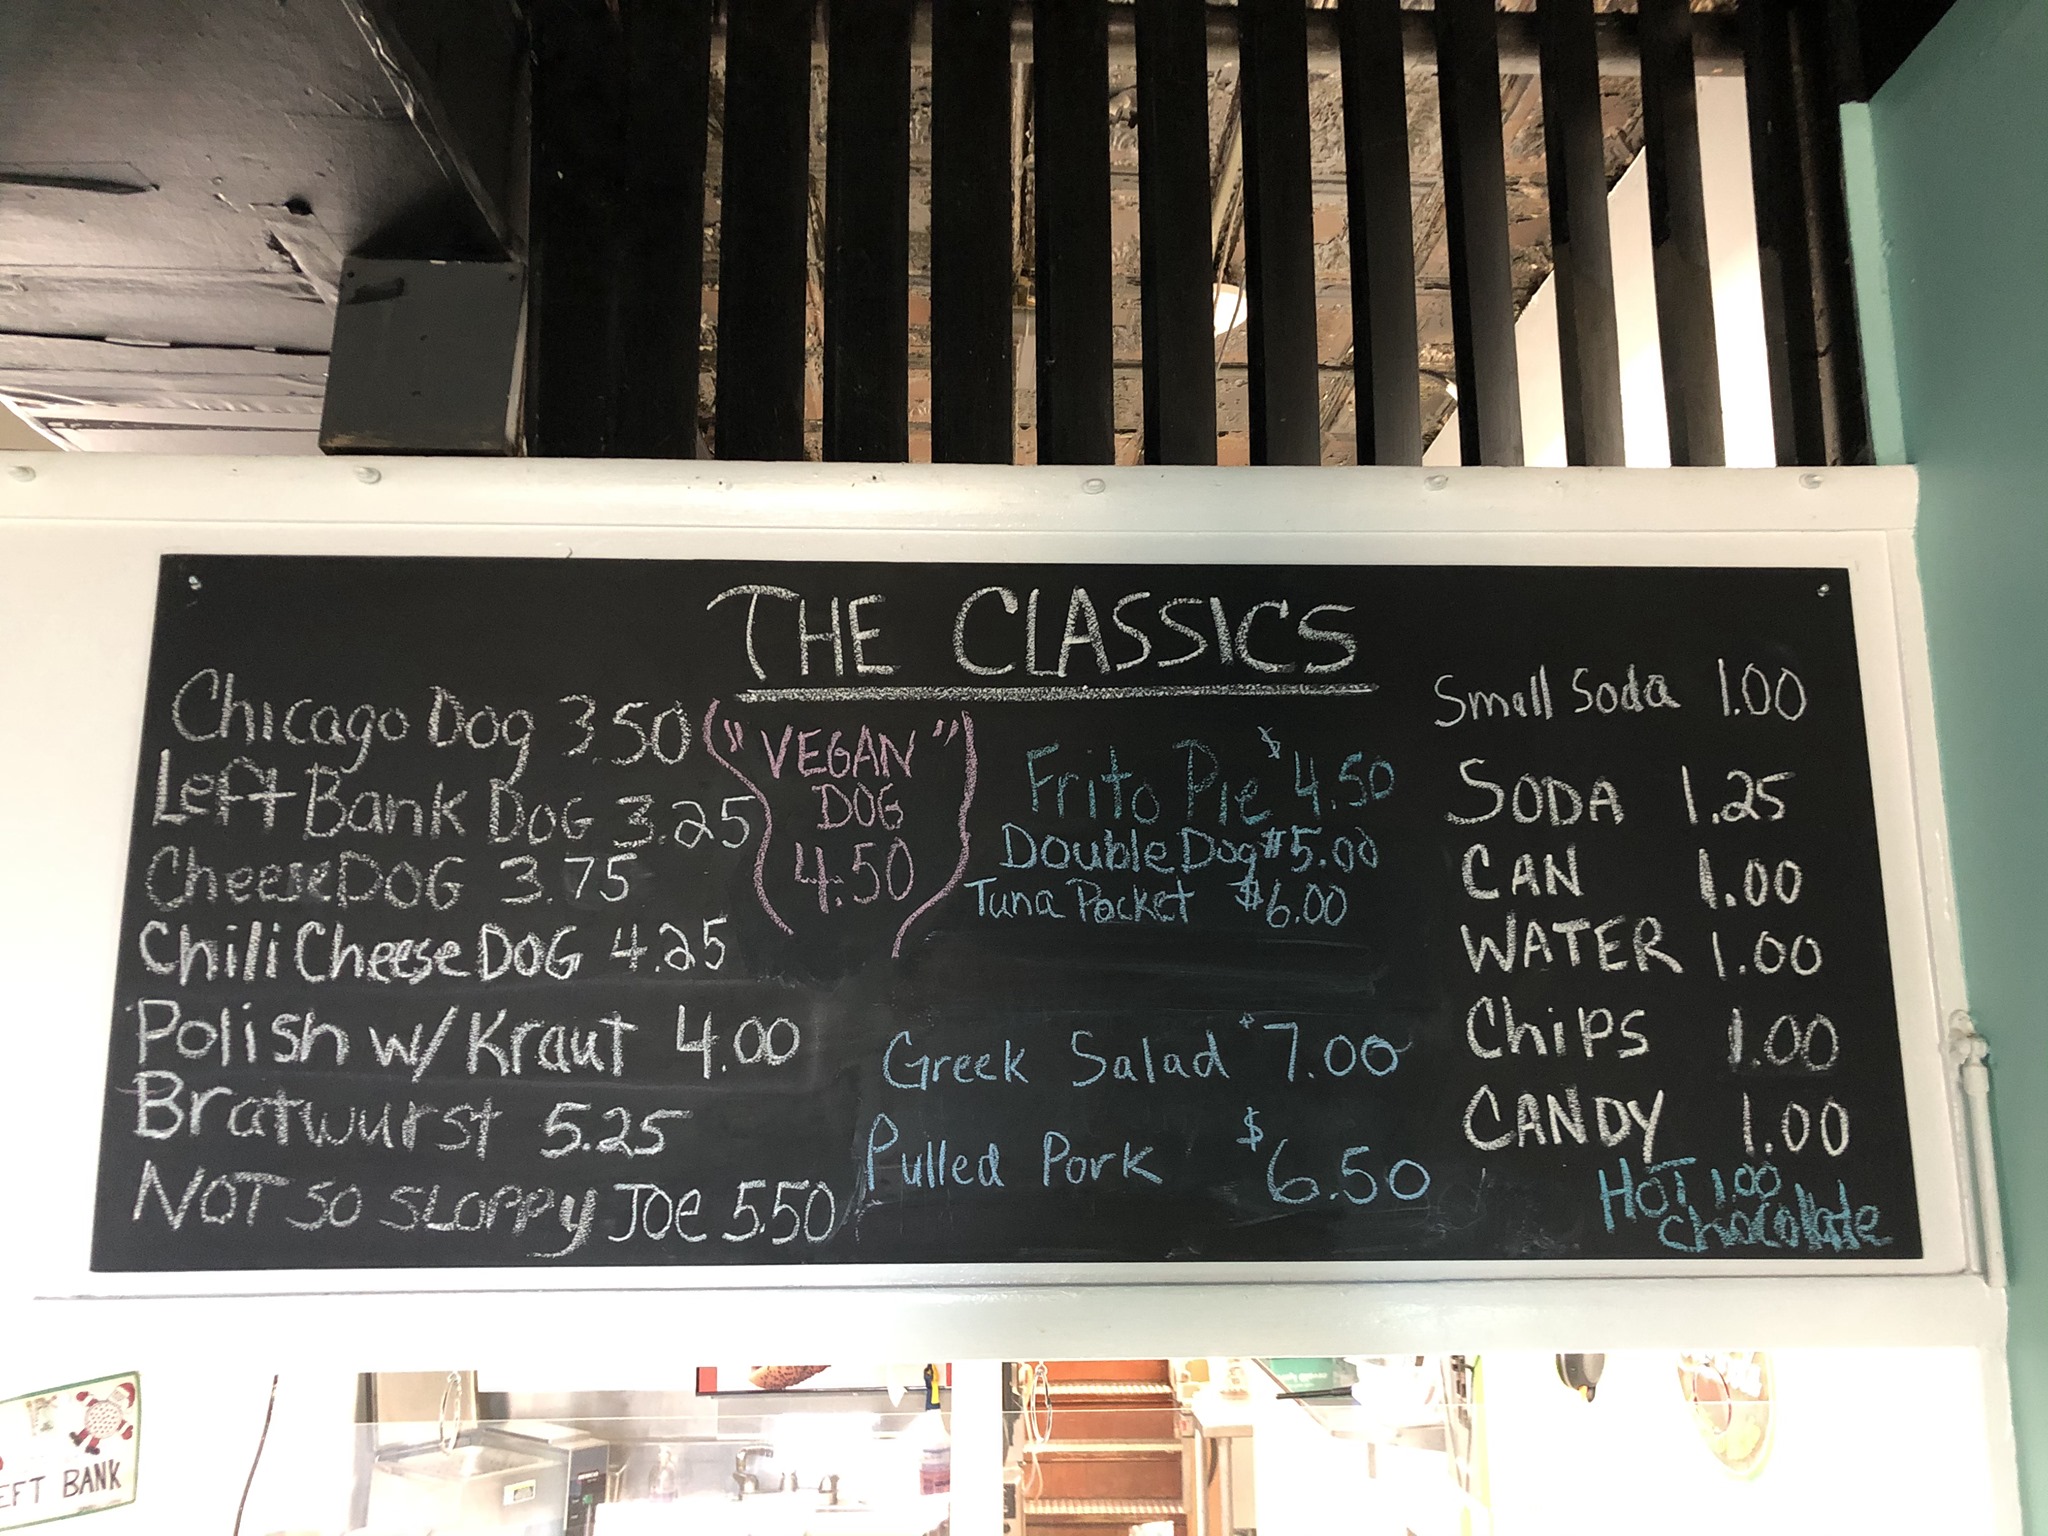 THE CLASSICS
Chicago Dog 3.50
Left Bank DOG 3.25
CheeseDOG 3.75
Chili Cheese DOG 4.25
Polish w/ Kraut 4.00
Bratwurst 5.25
NOT SO SLOPPY JOE 5.50
"VEGAN"
DOG
4.50
Frito Pie $4.50
Double Dog $5.00
Tuna Pocket $6.00
Greek Salad $7.00
Pulled Pork $6.50
Small Soda 1.00
SODA 1.25
CAN 1.00
WATER 1.00
Chips 1.00
CANDY 1.00
HOT 1.00
Chocollate
EFT BANK